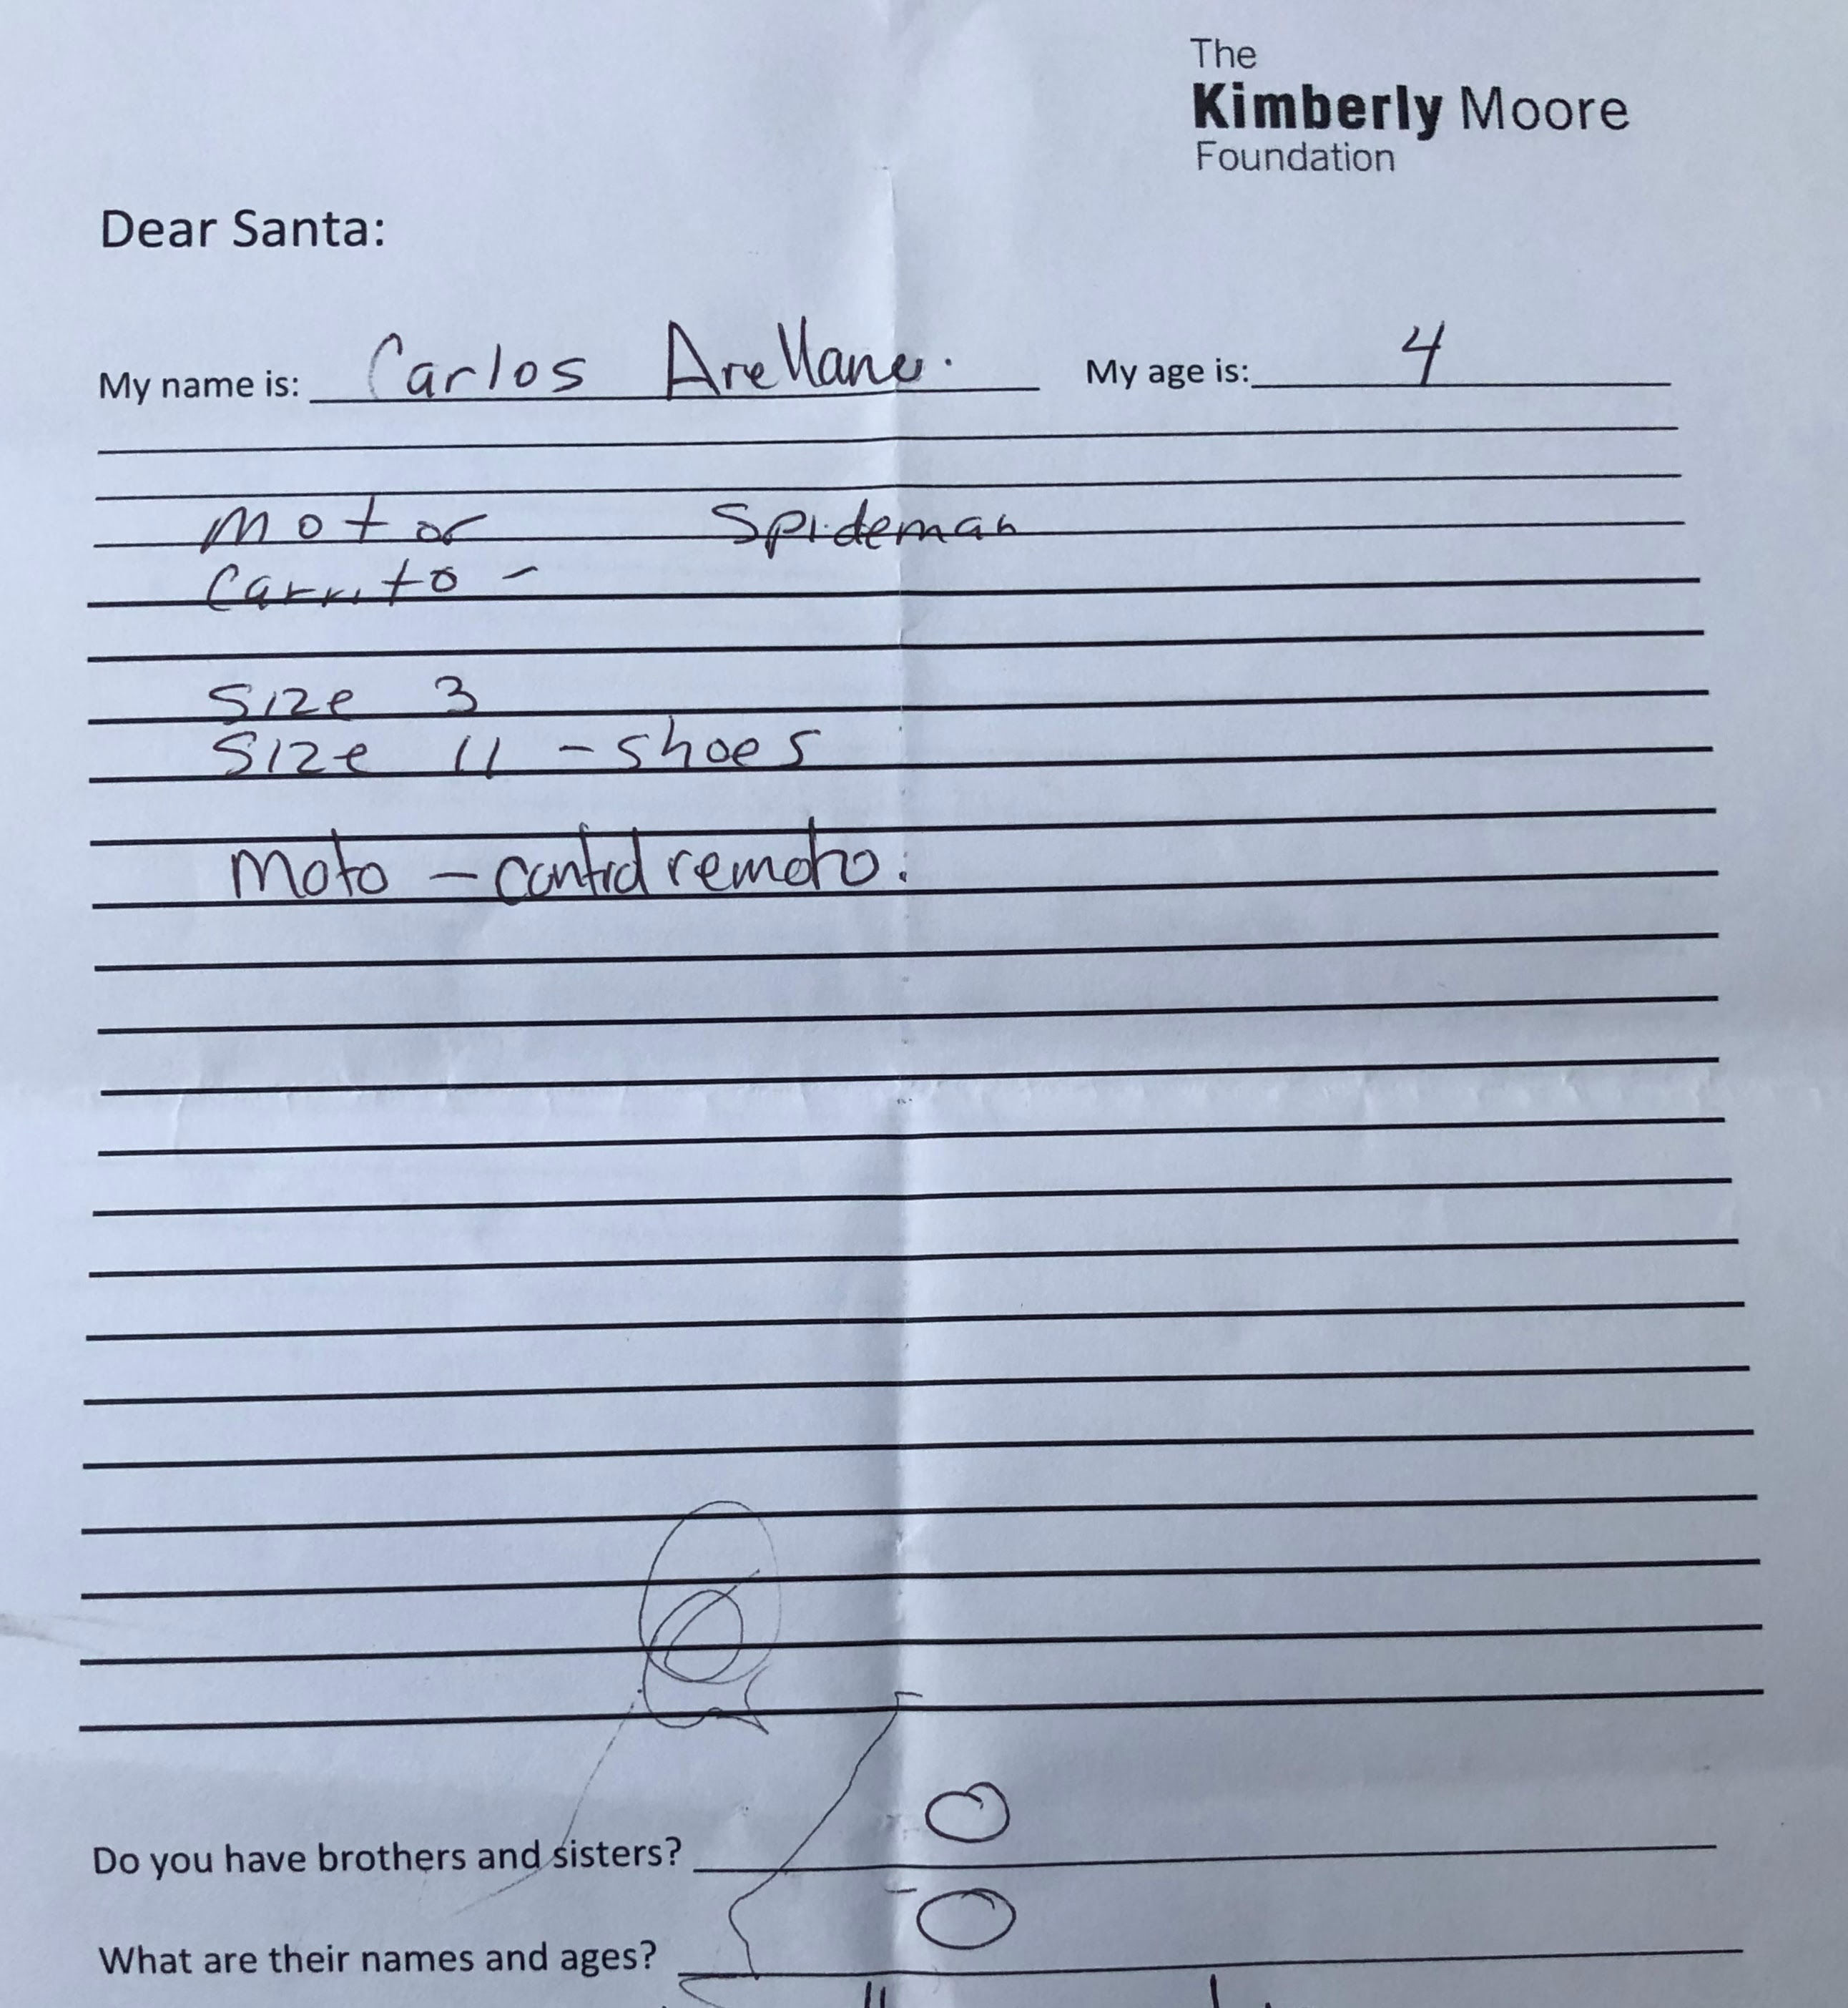 The
Kimberly Moore
Foundation
Dear Santa:
My name is: Carlos Arellano. My age is: 4
Motor Spideman
Carrito -
Size 3
Size 11 - shoes
Moto - control remoto.
Do you have brothers and sisters? 0
What are their names and ages? 0